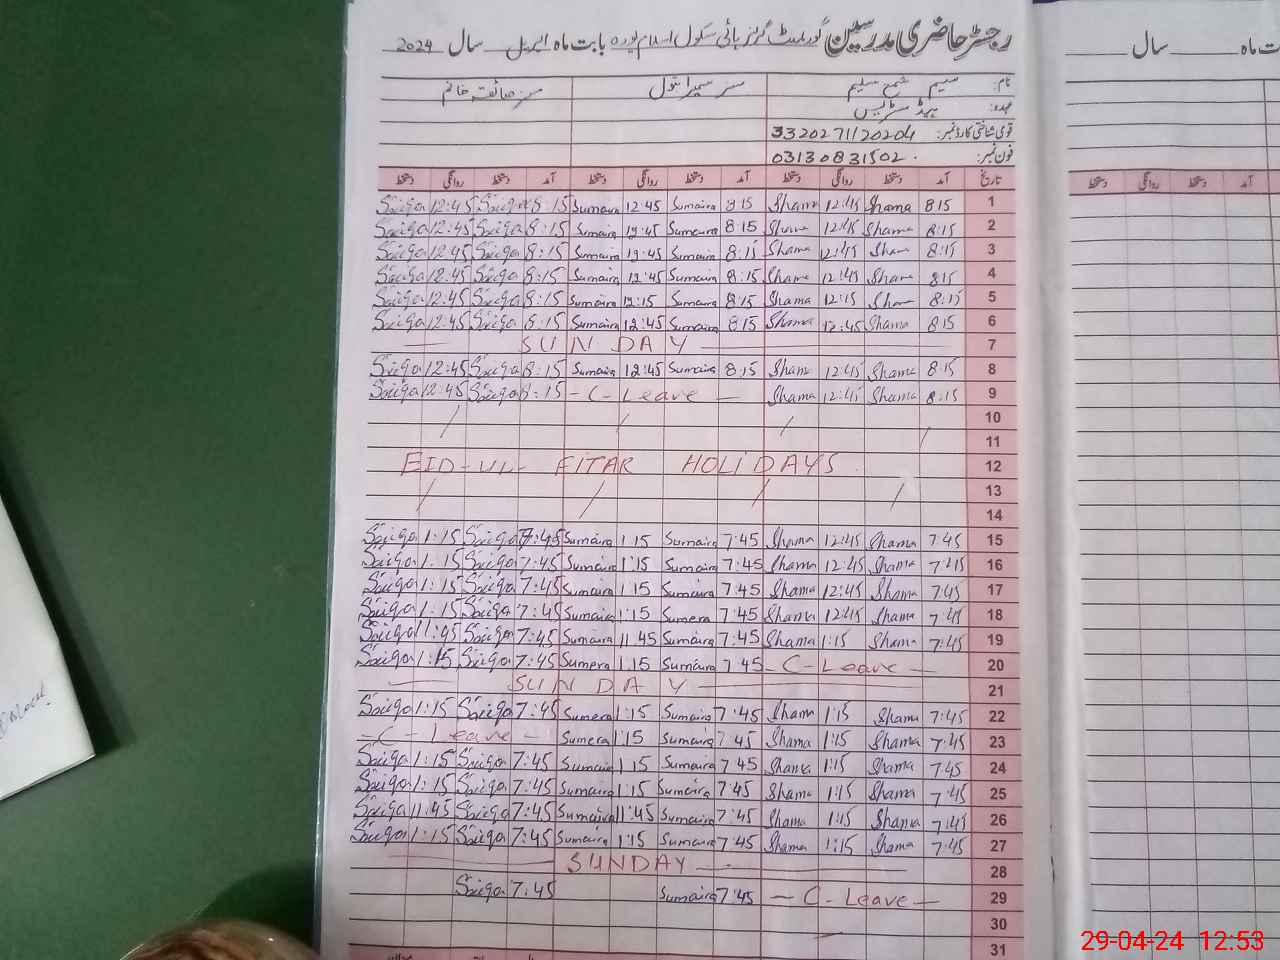 رجسٹر حاضری مدرسین گورنمنٹ گرلز ہائی سکول اسلام پورہ بابت ماہ اپریل سال 2024
نام: مسیم شمع سلیم مسز سمیرا بتول مسز صائقہ خانم
عہدہ: ہیڈ مسٹریس
قومی شناختی کارڈ نمبر: 3320271120204
فون نمبر: 03130831502
تاریخ آمد دستخط روانگی دستخط آمد دستخط روانگی دستخط آمد دستخط روانگی دستخط
Saiqa 12:45 Saiqa 8:15 Sumaira 12:45 Sumaira 8:15 Shama 12:45 Shama 8:15 1
Saiqa 12:45 Saiqa 8:15 Sumaira 12:45 Sumaira 8:15 Shama 12:45 Shama 8:15 2
Saiqa 12:45 Saiqa 8:15 Sumaira 12:45 Sumaira 8:15 Shama 12:45 Sham 8:15 3
Saiqa 12:45 Saiqa 8:15 Sumaira 12:45 Sumaira 8:15 Shama 12:45 Shama 8:15 4
Saiqa 12:45 Saiqa 8:15 Sumaira 12:15 Sumaira 8:15 Shama 12:15 Sham 8:15 5
Saiqa 12:45 Saiqa 8:15 Sumaira 12:45 Sumaira 8:15 Shama 12:45 Shama 8:15 6
SUNDAY 7
Saiqa 12:45 Saiqa 8:15 Sumaira 12:45 Sumaira 8:15 Shama 12:45 Shama 8:15 8
Saiqa 12:45 Saiqa 8:15 - C - Leave - Shama 12:45 Shama 8:15 9
10
11
EID-UL-FITAR HOLIDAYS 12
13
14
Saiqa 1:15 Saiqa 7:45 Sumaira 1:15 Sumaira 7:45 Shama 12:45 Shama 7:45 15
Saiqa 1:15 Saiqa 7:45 Sumaira 1:15 Sumaira 7:45 Shama 12:45 Shama 7:45 16
Saiqa 1:15 Saiqa 7:45 Sumaira 1:15 Sumaira 7:45 Shama 12:45 Shama 7:45 17
Saiqa 1:15 Saiqa 7:45 Sumaira 1:15 Sumera 7:45 Shama 12:45 Shama 7:45 18
Saiqa 11:45 Saiqa 7:45 Sumaira 11:45 Sumaira 7:45 Shama 1:15 Shama 7:45 19
Saiqa 1:15 Saiqa 7:45 Sumera 1:15 Sumaira 7:45 - C - Leave - 20
SUNDAY 21
Saiqa 1:15 Saiqa 7:45 Sumera 1:15 Sumaira 7:45 Sham 1:15 Shama 7:45 22
- C - Leave - Sumera 1:15 Sumaira 7:45 Shama 1:15 Shama 7:45 23
Saiqa 1:15 Saiqa 7:45 Sumaira 1:15 Sumaira 7:45 Shama 1:15 Shama 7:45 24
Saiqa 1:15 Saiqa 7:45 Sumaira 1:15 Sumaira 7:45 Shama 1:15 Shama 7:45 25
Saiqa 11:45 Saiqa 7:45 Sumaira 11:45 Sumaira 7:45 Shama 1:15 Shama 7:45 26
Saiqa 1:15 Saiqa 7:45 Sumaira 1:15 Sumaira 7:45 Shama 1:15 Shama 7:45 27
SUNDAY 28
Saiqa 7:45 Sumaira 7:45 - C - Leave - 29
30
31
ت ماہ سال
آمد دستخط روانگی دستخط
29-04-24 12:53